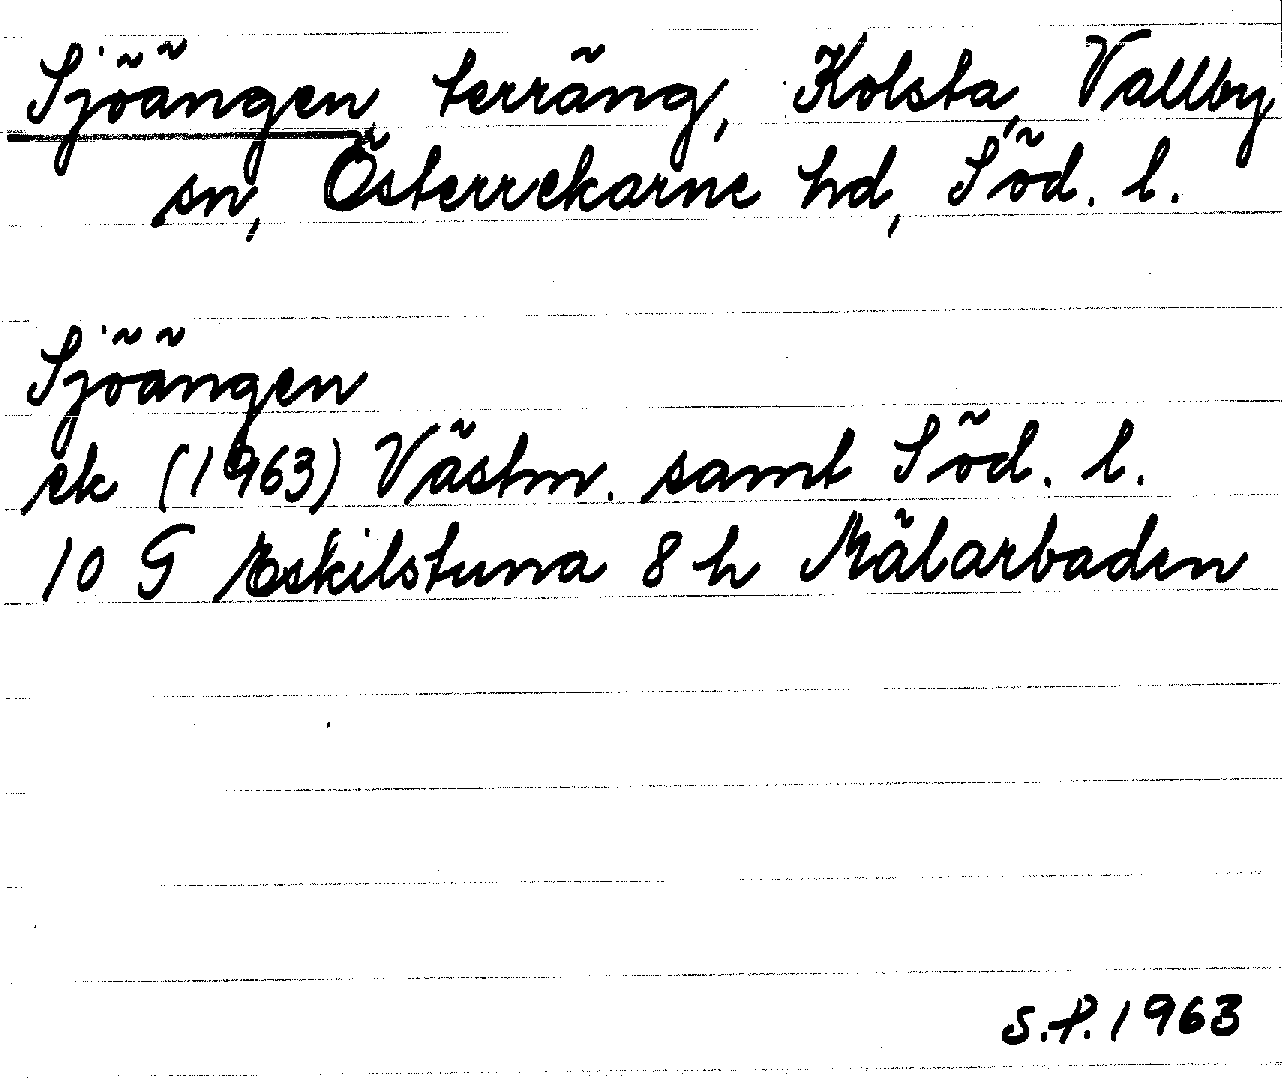 Sjöängen, terräng, Kolsta, Vallby
sn, Österrekarne hd, Söd. l.
Sjöängen
ek (1963) Västm. samt Söd. l.
10 G Eskilstuna 8 h Mälarbaden
S.P. 1963